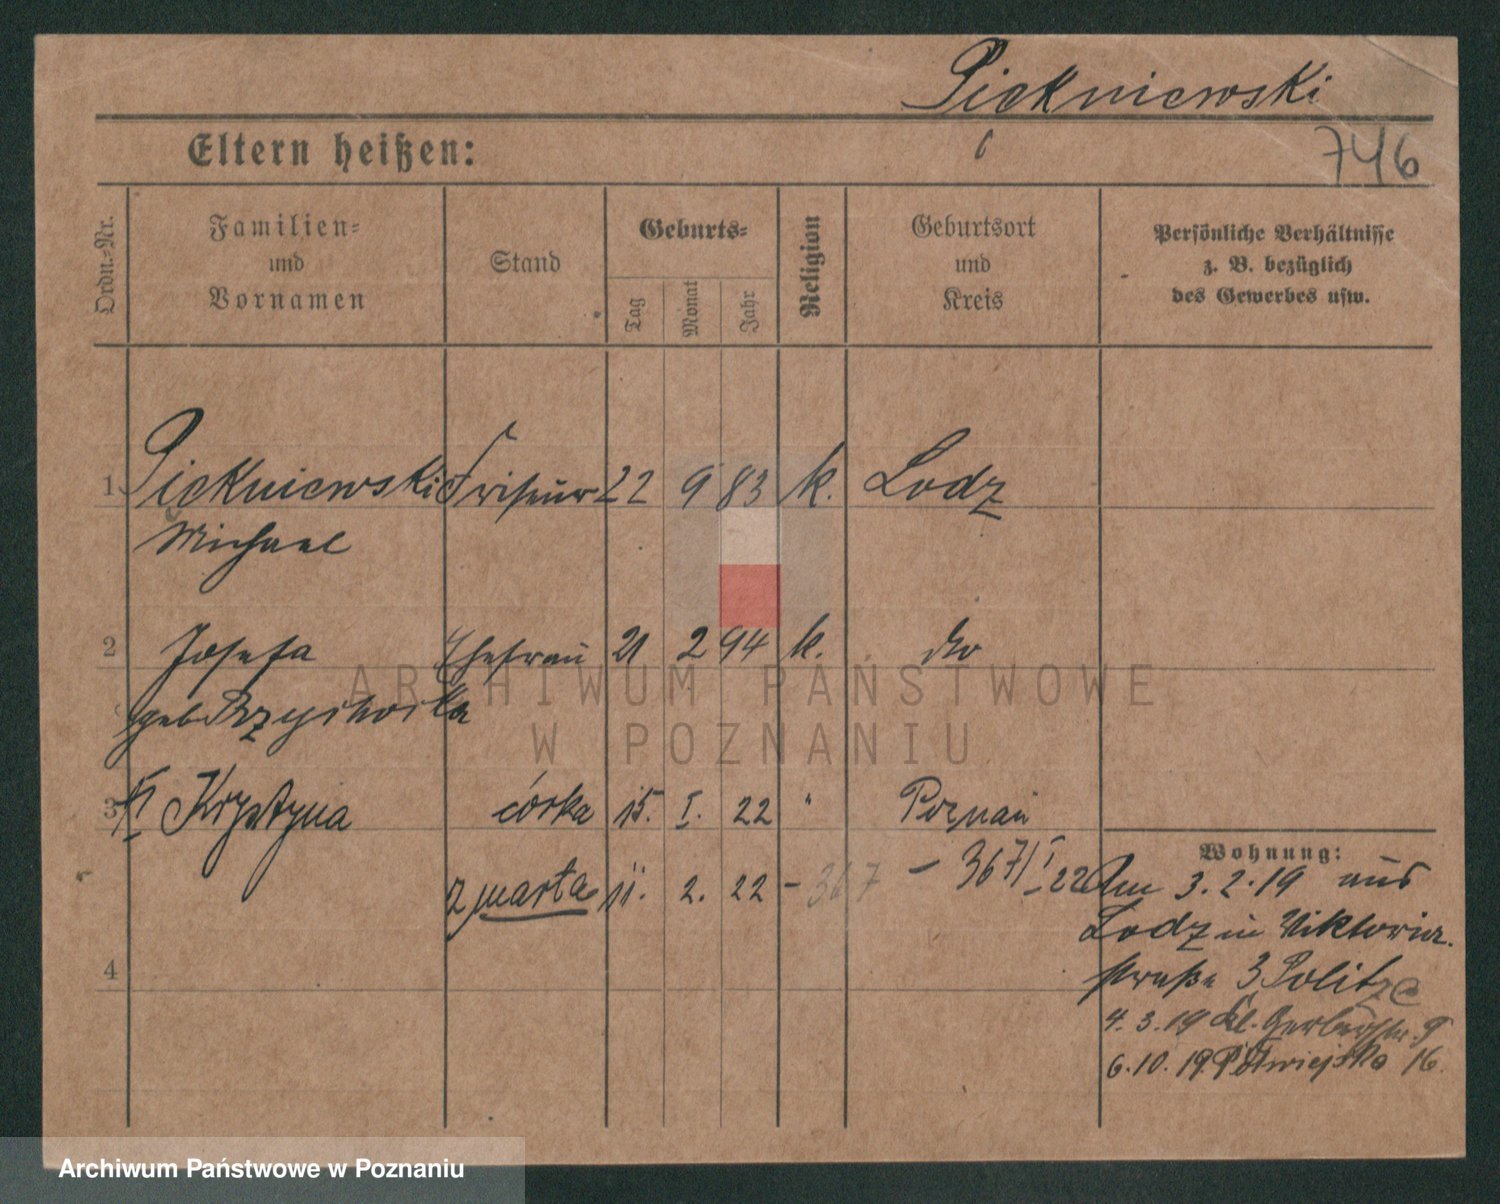 Piekniewski
746
Eltern heißen:
Ordn.-Nr.
Familien=
und
Vornamen
Stand
Geburts=
Tag
Monat
Jahr
Religion
Geburtsort
und
Kreis
Persönliche Verhältnisse
z. B. bezüglich
des Gewerbes usw.
1 Piekniewski Friseur 22 9 83 k. Lodz
Michael
2 Josefa Ehefrau 21 2 94 k. do
geb
3 Krystyna córka 15. I. 22 " Poznań
zmarła 11. 2. 22 - 367 - 367/I -22
4
Wohnung:
Am 3.2.19 aus
Lodz in Viktoria-
straße 3 Politz
4.3.19 Kl. Gerberstr. 9
6.10.19 Półwiejska 16.
ARCHIWUM PAŃSTWOWE
W POZNANIU
Archiwum Państwowe w Poznaniu